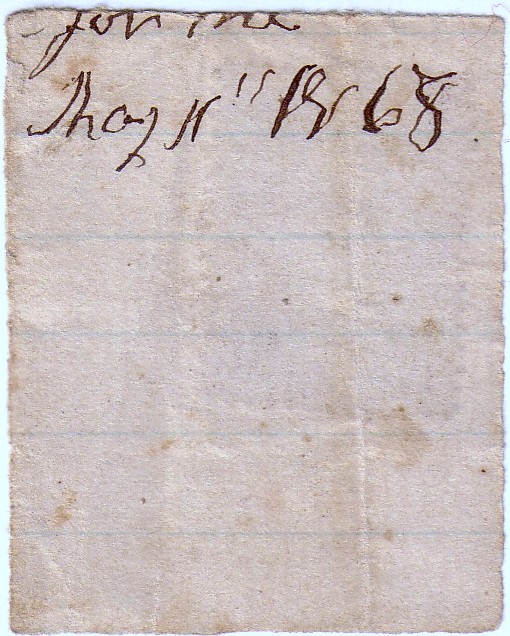 for me
May 11" 1868